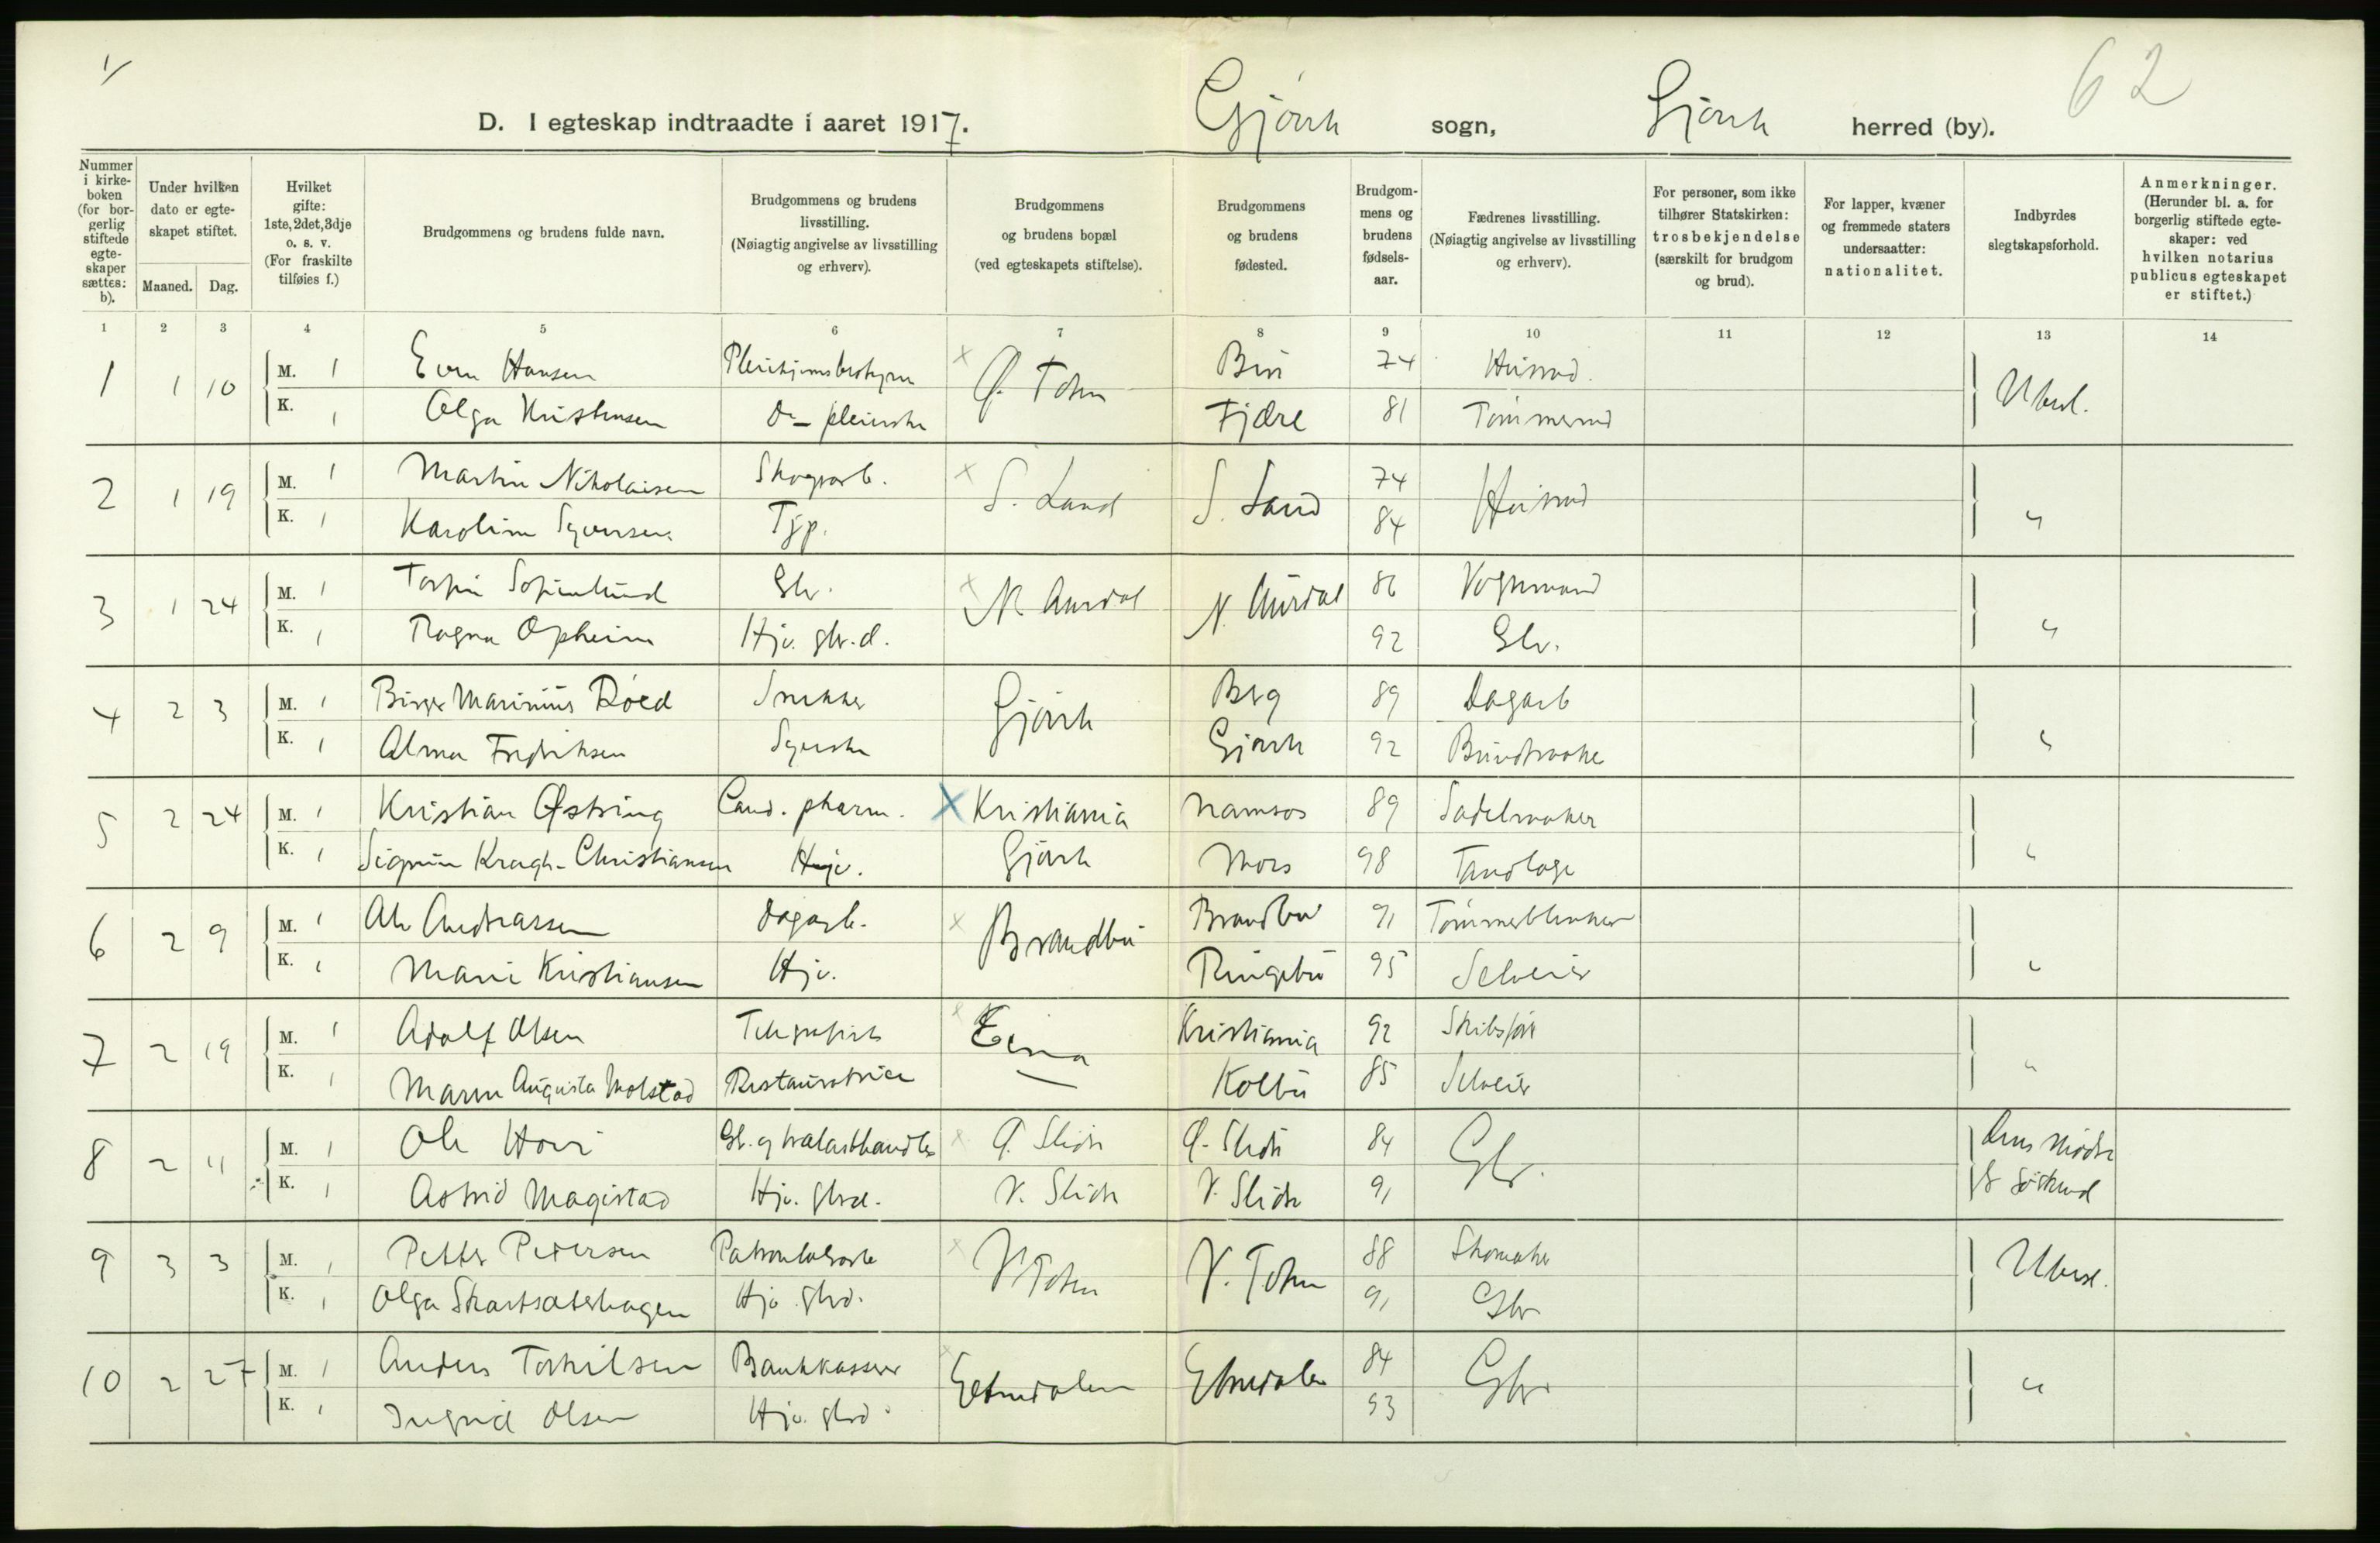 1/
62
D. I egteskap indtraadte i aaret 1917.
Gjøvik sogn, Gjøvik herred (by).
Nummer i kirkeboken (for borgerlig stiftede egteskaper sættes: b).
Under hvilken dato er egteskapet stiftet.
Maaned. Dag.
Hvilket gifte: 1ste, 2det, 3dje o. s. v. (For fraskilte tilføies f.)
Brudgommens og brudens fulde navn.
Brudgommens og brudens livsstilling. (Nøiagtig angivelse av livsstilling og erhverv).
Brudgommens og brudens bopæl (ved egteskapets stiftelse).
Brudgommens og brudens fødested.
Brudgommens og brudens fødselsaar.
Fædrenes livsstilling. (Nøiagtig angivelse av livsstilling og erhverv).
For personer, som ikke tilhører Statskirken: trosbekjendelse (særskilt for brudgom og brud).
For lapper, kvæner og fremmede staters undersaatter: nationalitet.
Indbyrdes slegtskapsforhold.
Anmerkninger. (Herunder bl. a. for borgerlig stiftede egteskaper: ved hvilken notarius publicus egteskapet er stiftet.)
1 2 3 4 5 6 7 8 9 10 11 12 13 14
1 1 10 M. 1 Even Hansen Pleiehjemsbestyrer Ø. Toten Biri 74 Husmd. Ubesl.
K. 1 Olga Kristensen Do pleierske Fjære 81 Tømmermd
2 1 19 M. 1 Martin Nikolaisen Skogsarb. S. Land S. Land 74 Husmd "
K. 1 Karoline Syversen Tjp. 84
3 1 24 M. 1 Torfin Sofienlund Gbr. N. Aurdal N. Aurdal 86 Vognmand "
K. 1 Ragna Opheim Hjv. gbr.d. 92 Gbr.
4 2 3 M. 1 Birger Marinius Röed Snekker Gjøvik Berg 89 Dagarb "
K. 1 Alma Fredriksen Syerske Gjøvik 92 Bundtmaker
5 2 24 M. 1 Kristian Østring Cand. pharm. Kristiania Namsos 89 Sadelmaker "
K. 1 Sigrun Kragh-Christiansen Hjv. Gjøvik Mors 98 Tandlæge
6 2 9 M. 1 Ole Andreassen Dagarb. Brandbu Brandbu 91 Tømmerblinker "
K. 1 Marie Kristiansen Hjv. Ringebu 95 Selveier
7 2 19 M. 1 Adolf Olsen Telegrafist Eina Kristiania 92 Skibsfør "
K. 1 Maren Augusta Molstad Restauratrice Kolbu 85 Selveier
8 2 11 M. 1 Ole Hovi Gb. og trælasthandler Ø. Slidre Ø. Slidre 84 Gbr. Deres mødre
K. 1 Astrid Magistad Hjv. gbrd. V. Slidre V. Slidre 91 er søskend
9 3 3 M. 1 Petter Petersen V. Toten V. Toten 88 Skomaker Ubesl.
K. 1 Olga Skartsæterhagen Hjv. gbrd. 91 Gbr
10 2 27 M. 1 Anders Torkilsen Bankkasserer Etnedalen Etnedalen 84 Gbr "
K. 1 Ingrid Olsen Hjv. gbrd. 93